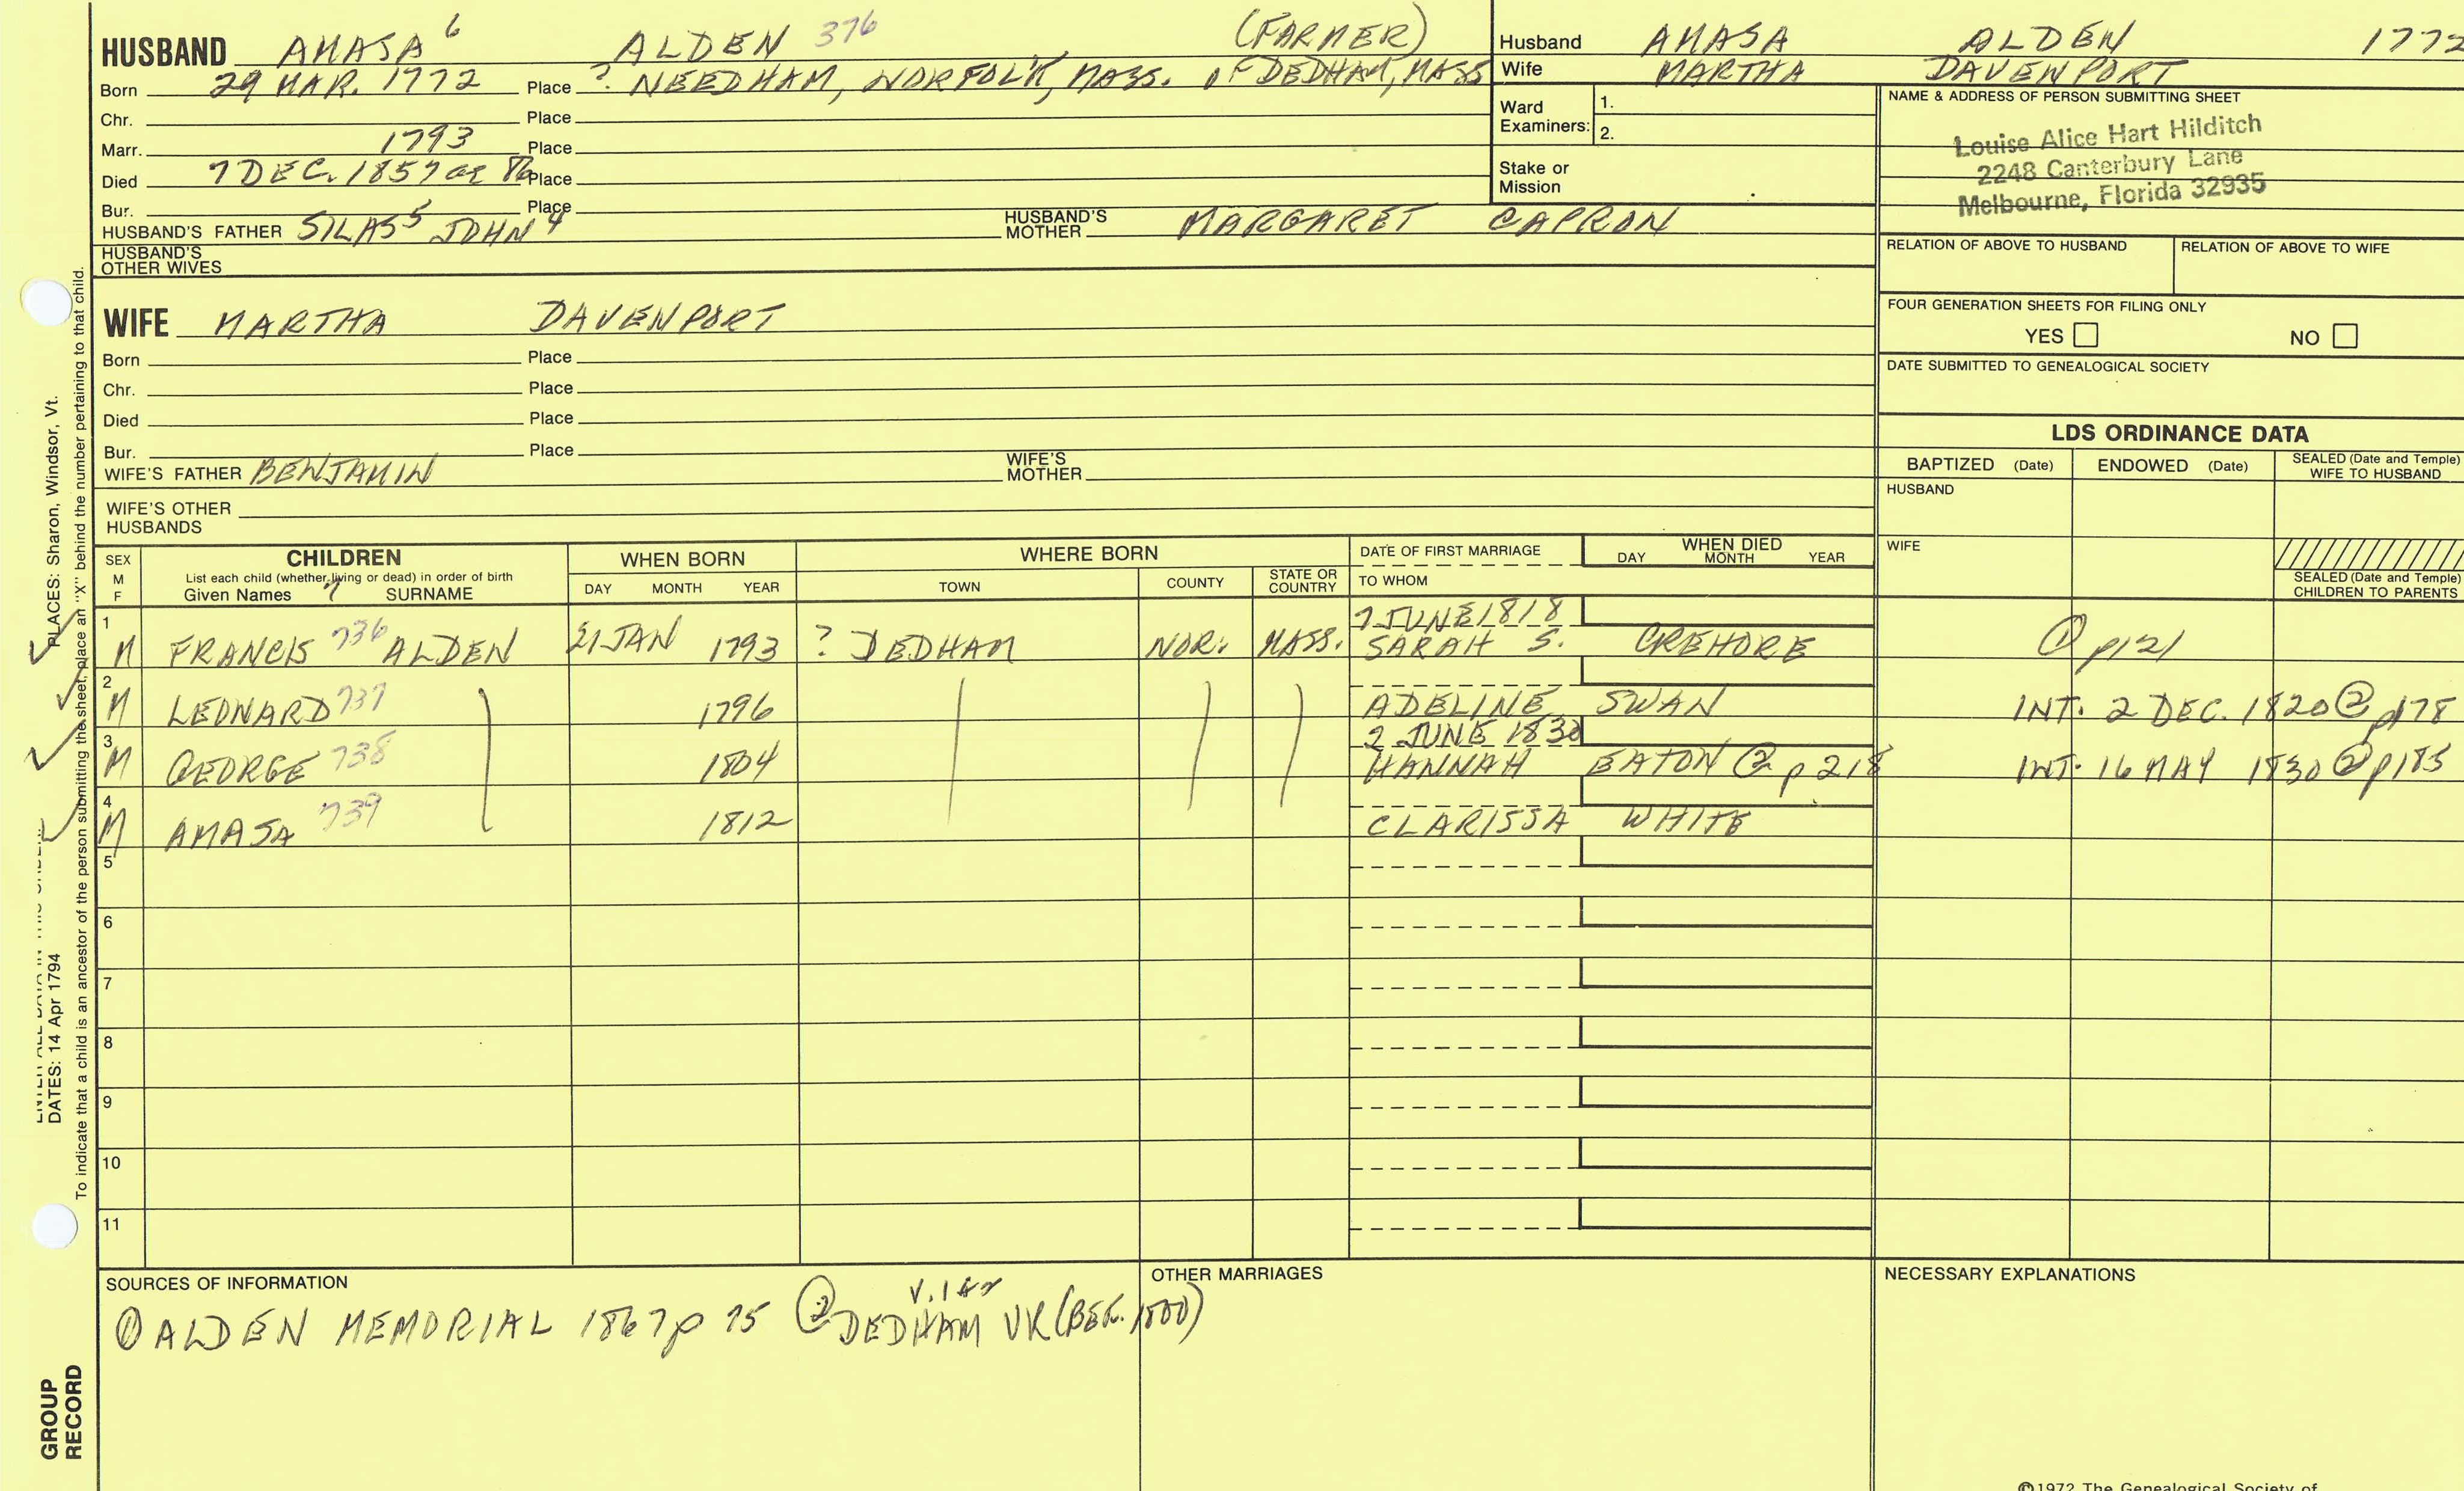 HUSBAND AMASA 6 ALDEN 376 (FARMER)
Born 29 MAR. 1772 Place ? NEEDHAM, NORFOLK, MASS. OF DEDHAM, MASS
Chr. Place
Marr. 1793 Place
Died 7 DEC. 1857 ae 86 Place
Bur. Place
HUSBAND'S FATHER SILAS 5 JOHN 4 HUSBAND'S MOTHER MARGARET CAPRON
HUSBAND'S OTHER WIVES
WIFE MARTHA DAVENPORT
Born Place
Chr. Place
Died Place
Bur. Place
WIFE'S FATHER BENJAMIN WIFE'S MOTHER
WIFE'S OTHER HUSBANDS
Husband AMASA ALDEN 1772
Wife MARTHA DAVENPORT
Ward Examiners: 1.
2.
Stake or Mission
NAME & ADDRESS OF PERSON SUBMITTING SHEET
Louise Alice Hart Hilditch
2248 Canterbury Lane
Melbourne, Florida 32935
RELATION OF ABOVE TO HUSBAND RELATION OF ABOVE TO WIFE
FOUR GENERATION SHEETS FOR FILING ONLY
YES NO
DATE SUBMITTED TO GENEALOGICAL SOCIETY
LDS ORDINANCE DATA
BAPTIZED (Date) ENDOWED (Date) SEALED (Date and Temple) WIFE TO HUSBAND
HUSBAND
WIFE
SEALED (Date and Temple) CHILDREN TO PARENTS
SEX M F
CHILDREN
List each child (whether living or dead) in order of birth
Given Names 7 SURNAME
WHEN BORN
DAY MONTH YEAR
WHERE BORN
TOWN COUNTY STATE OR COUNTRY
DATE OF FIRST MARRIAGE
TO WHOM
WHEN DIED
DAY MONTH YEAR
1 M FRANCIS 736 ALDEN 21 JAN 1793 ? DEDHAM NOR. MASS. 7 JUNE 1818 SARAH S. CREHORE ① p121
2 M LEONARD 737 1796 ADELINE SWAN INT. 2 DEC. 1820 ② p178
3 M GEORGE 738 1804 2 JUNE 1830 HANNAH EATON ② p218 INT. 16 MAY 1830 ② p185
4 M AMASA 739 1812 CLARISSA WHITE
5
6
7
8
9
10
11
SOURCES OF INFORMATION
① ALDEN MEMORIAL 1867 p 75 ② DEDHAM VR (BEF. 1800)
V. 1 & 2
OTHER MARRIAGES
NECESSARY EXPLANATIONS
©1972 The Genealogical Society of
PLACES: Sharon, Windsor, Vt.
DATES: 14 Apr 1794
To indicate that a child is an ancestor of the person submitting the sheet, place an "X" behind the number pertaining to that child.
GROUP
RECORD